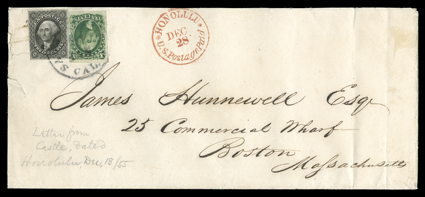 HONOLULU
DEC.
28
U.S. Postage Paid
CAL.
James Hunnewell Esqr
25 Commercial Wharf
Boston
Massachusetts
Letter from
Castle, dated
Honolulu, Dec, 18/55